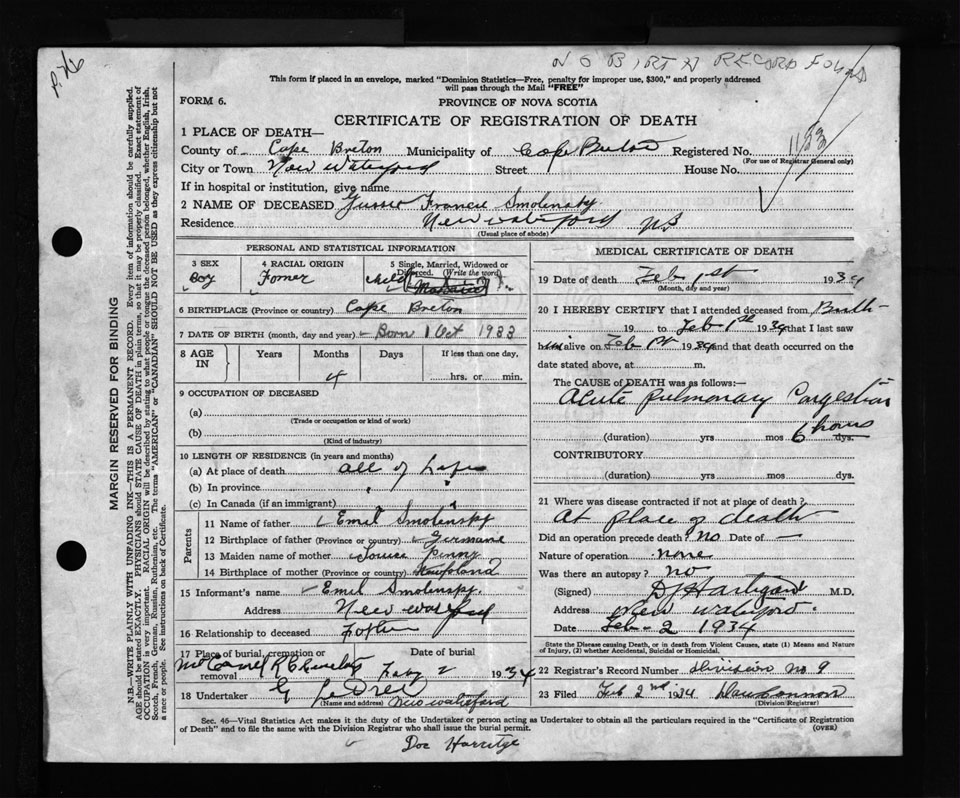 P.76
NO BIRTH RECORD FOUND
This form if placed in an envelope, marked "Dominion Statistics—Free, penalty for improper use, $300," and properly addressed
will pass through the Mail "FREE"
FORM 6.
PROVINCE OF NOVA SCOTIA
CERTIFICATE OF REGISTRATION OF DEATH
1153
1 PLACE OF DEATH—
County of Cape Breton Municipality of Cape Breton Registered No.
(For use of Registrar General only)
City or Town New Waterford Street House No.
If in hospital or institution, give name
2 NAME OF DECEASED Francis Smolensky
Residence New Waterford NS
(Usual place of abode)
PERSONAL AND STATISTICAL INFORMATION
3 SEX 4 RACIAL ORIGIN 5 Single, Married, Widowed or
Divorced. (Write the word)
Boy child
6 BIRTHPLACE (Province or country) Cape Breton
7 DATE OF BIRTH (month, day and year) Born 1 Oct 1933
8 AGE IN Years Months Days If less than one day,
4 hrs. or min.
9 OCCUPATION OF DECEASED
(a)
(Trade or occupation or kind of work)
(b)
(Kind of industry)
10 LENGTH OF RESIDENCE (in years and months)
(a) At place of death all of Life
(b) In province
(c) In Canada (if an immigrant)
Parents
11 Name of father Emil Smolensky
12 Birthplace of father (Province or country) Germane
13 Maiden name of mother Louise
14 Birthplace of mother (Province or country)
15 Informant's name Emil Smolensky.
Address New Waterford
16 Relationship to deceased Father
17 Place of burial, cremation or Date of burial
removal Feby 2 1934
18 Undertaker G LeDrew
(Name and address) New Waterford
MEDICAL CERTIFICATE OF DEATH
19 Date of death Feb 1st 1934
(Month, day and year)
20 I HEREBY CERTIFY that I attended deceased from Birth
19 to Feb 1st 1934 that I last saw
him alive on Feb 1st 1934 and that death occurred on the
date stated above, at m.
The CAUSE OF DEATH was as follows:—
Acute Pulmonary Congestion
(duration) yrs mos 6 hours dys.
CONTRIBUTORY
(duration) yrs mos dys.
21 Where was disease contracted if not at place of death?
At place of death
Did an operation precede death? no Date of —
Nature of operation none
Was there an autopsy? no
(Signed) D Hartigan M.D.
Address New Waterford.
Date Feb-2 1934
State the Disease causing Death, or in death from Violent Causes, state (1) Means and Nature
of Injury, (2) whether Accidental, Suicidal or Homicidal.
22 Registrar's Record Number Division No. 9
23 Filed Feb 2nd 1934 Dan Cannon
(Division Registrar)
Sec. 46—Vital Statistics Act makes it the duty of the Undertaker or person acting as Undertaker to obtain all the particulars required in the "Certificate of Registration
of Death" and to file the same with the Division Registrar who shall issue the burial permit.
(OVER)
Doc
MARGIN RESERVED FOR BINDING
N.B.—WRITE PLAINLY WITH UNFADING INK—THIS IS A PERMANENT RECORD. Every item of information should be carefully supplied.
AGE should be stated EXACTLY. PHYSICIANS should STATE CAUSE OF DEATH in plain terms, so that it may be properly classified. Exact statement of
OCCUPATION is very important. RACIAL ORIGIN will be described by stating to what people or tongue the deceased person belonged, whether English, Irish,
Scotch, French, German, Russian, Ruthenian, etc. The terms "AMERICAN" or "CANADIAN" SHOULD NOT BE USED as they express citizenship but not
a race or people. See instructions on back of Certificate.